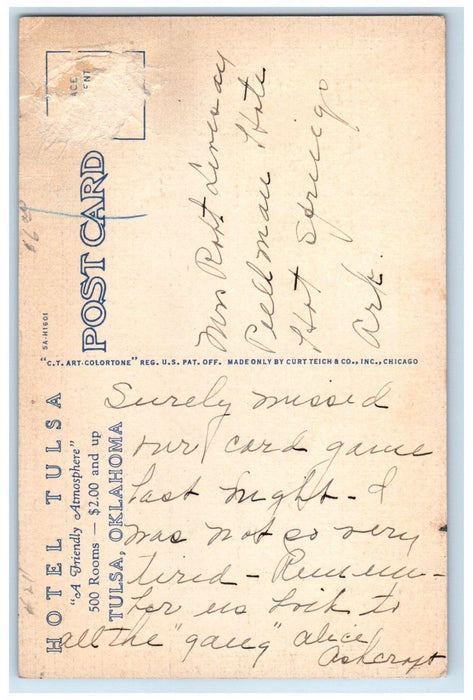 HOTEL TULSA
"A Friendly Atmosphere"
500 Rooms — $2.00 and up
TULSA, OKLAHOMA
POST CARD
5A-H1601
"C.T. ART-COLORTONE" REG. U.S. PAT. OFF. MADE ONLY BY CURT TEICH & CO., INC., CHICAGO
Mrs Robt
Pullman Hote
Hot Springs
Ark.
Surely missed
our card game
last night - I
was not so very
tired - Remem-
ber us both to
all the "gang" Alice
Ashcraft